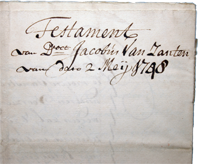 Testament
van Doct Jacobus Van Zanten
van dato 2 Meij 1748